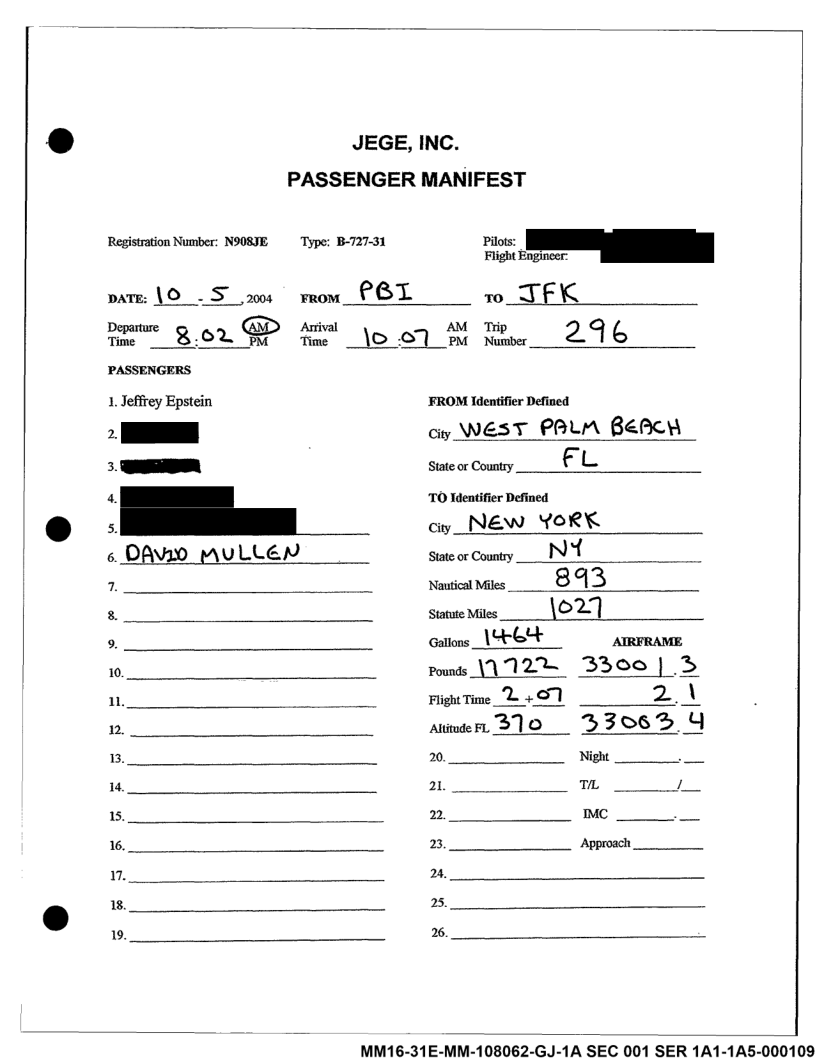 JEGE, INC.
PASSENGER MANIFEST
Registration Number: N908JE Type: B-727-31 Pilots:
Flight Engineer:
DATE: 10 - 5, 2004 FROM PBI TO JFK
Departure Time 8:02 AM PM Arrival Time 10:07 AM PM Trip Number 296
PASSENGERS
1. Jeffrey Epstein FROM Identifier Defined
2. City WEST PALM BEACH
3. State or Country FL
4. TO Identifier Defined
5. City NEW YORK
6. DAVID MULLEN State or Country NY
7. Nautical Miles 893
8. Statute Miles 1027
9. Gallons 1464 AIRFRAME
10. Pounds 17722 33001.3
11. Flight Time 2+07 2.1
12. Altitude FL 370 33063.4
13. 20. Night
14. 21. T/L /
15. 22. IMC
16. 23. Approach
17. 24.
18. 25.
19. 26.
MM16-31E-MM-108062-GJ-1A SEC 001 SER 1A1-1A5-000109